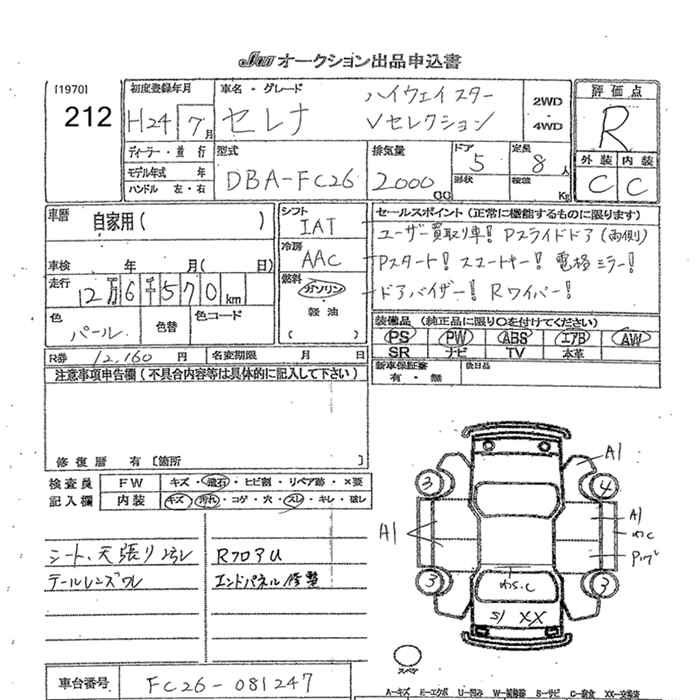 JAA オークション出品申込書
[1970]
212
初度登録年月
H24 7月
車名・グレード
セレナ
ハイウェイスター
Vセレクション
2WD
・
4WD
評価点
R
外装 内装
C C
ディーラー・並行
モデル年式 年
ハンドル 左・右
型式
DBA-FC26
排気量
2000 CC
ドア
5
形状
定員
8人
積載
Kg
車歴
自家用( )
車検 年 月( 日)
走行
12万6千570km
色
パール
色替
色コード
R券 12,160 円
名変期限 月 日
シフト
IAT
冷房
AAC
燃料
ガソリン
・
軽油
( )
セールスポイント(正常に機能するものに限ります)
ユーザー買取り車! Pスライドドア(両側)
Pスタート! スマートキー! 電格ミラー!
ドアバイザー! Rワイパー!
装備品(純正品に限り○を付けてください)
PS PW ABS エアB AW
SR ナビ TV 本革
新車保証書
有・無
後日品
注意事項申告欄(不具合内容等は具体的に記入して下さい)
修復歴 有〔箇所 〕
検査員
記入欄
FW キズ・飛石・ヒビ割・リペア跡・×要
内装 キズ・汚れ・コゲ・穴・スレ・キレ・破レ
シート、天張り
テールレンズワレ
RフロアU
エンドパネル修整
車台番号 FC26-081247
A1
3
4
A1
A1
わC
Pﾂｹﾞ
3
3
わらC
S1 XX
スペア
A-キズ E-エクボ U-凹み W-補修跡 S-サビ C-腐食 XX-交換済